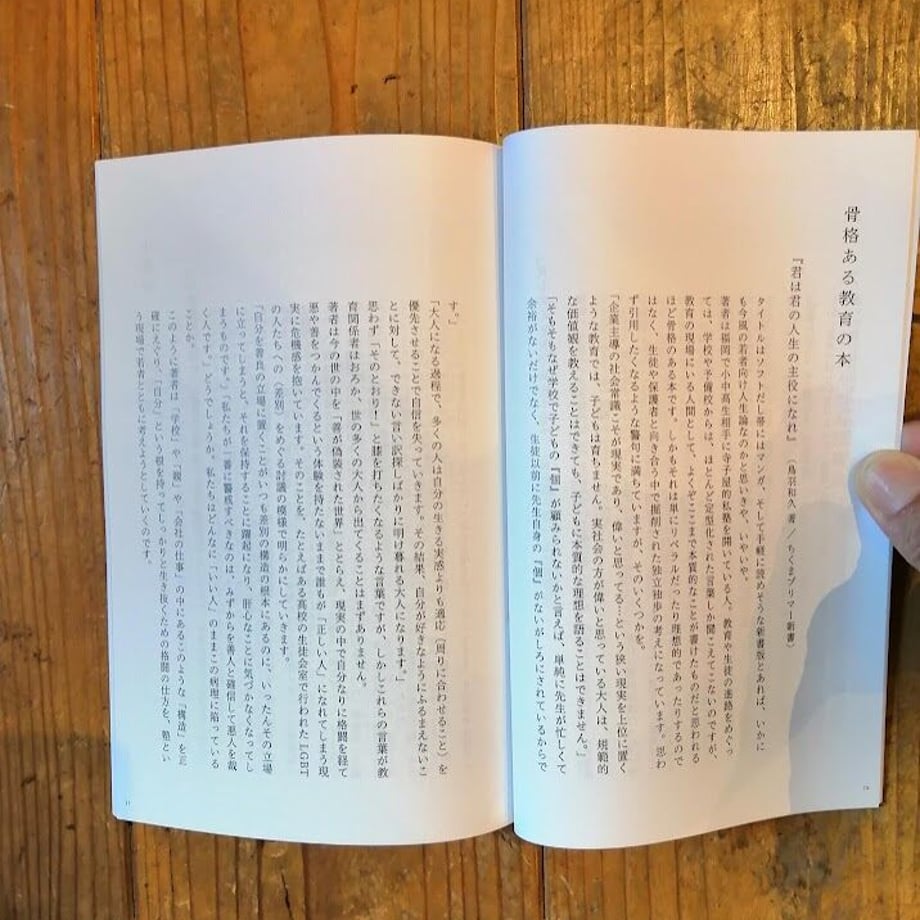 骨格ある教育の本
『君は君の人生の主役になれ』（鳥羽和久 著／ちくまプリマー新書）
タイトルはソフトだし帯にはマンガ、そして手軽に読めそうな新書版とあれば、いかに
も今風の若者向け人生論なのかと思いきや、いやいや。
著者は福岡で小中高生相手に寺子屋的私塾を開いている人。教育や生徒の進路をめぐっ
ては、学校や予備校からは、ほとんど定型化された言葉しか聞こえてこないのですが、
教育の現場にいる人間として、よくぞここまで本質的なことが書けたものだと思われる
ほど骨格のある本です。しかもそれは単にリベラルだったり理想的であったりするので
はなく、生徒や保護者と向き合う中で掘削された独立独歩の考えになっています。思わ
ず引用したくなるような警句に満ちていますが、そのいくつかを。
「企業主導の社会常識こそが現実であり、偉いと思ってる…という狭い現実を上位に置く
ような教育では、子どもは育ちません。実社会の方が偉いと思っている大人は、規範的
な価値観を教えることはできても、子どもに本質的な理想を語ることはできません。」
「そもそもなぜ学校で子どもの『個』が顧みられないかと言えば、単純に先生が忙しくて
余裕がないだけでなく、生徒以前に先生自身の『個』がないがしろにされているからで
す。」
「大人になる過程で、多くの人は自分の生きる実感よりも適応（周りに合わせること）を
優先させることで自信を失っていきます。その結果、自分が好きなようにふるまえないこ
とに対して、できない言い訳探しばかりに明け暮れる大人になります。」
思わず「そのとおり！」と膝を打ちたくなるような言葉ですが、しかしこれらの言葉が教
育関係者はおろか、世の多くの大人から出てくることはまずありません。
著者は今の世の中を「善が偽装された世界」ととらえ、現実の中で自分なりに格闘を経て
悪や善をつかんでくるという体験を持たないままで誰もが「正しい人」になれてしまう現
実に危機感を抱いています。そのことを、たとえばある高校の生徒会室で行われたLGBT
の人たちへの〈差別〉をめぐる討議の模様で明らかにしていきます。
「自分を善良の立場に置くことがいつも差別の構造の根本にあるのに、いったんその立場
に立ってしまうと、それを保持することに躍起になり、肝心なことに気づかなくなってし
まうものです。」「私たちが一番に警戒すべきなのは、みずからを善人と確信して悪人を裁
く人です。」どうでしょうか。私たちはどんなに「いい人」のままこの病理に陥っている
ことか。
このように著者は「学校」や「親」や「会社の仕事」の中にあるこのような「構造」を正
確にえぐり、「自分」という根を持ってしっかりと生き抜くための格闘の仕方を、塾とい
う現場で若者とともに考えようとしていくのです。